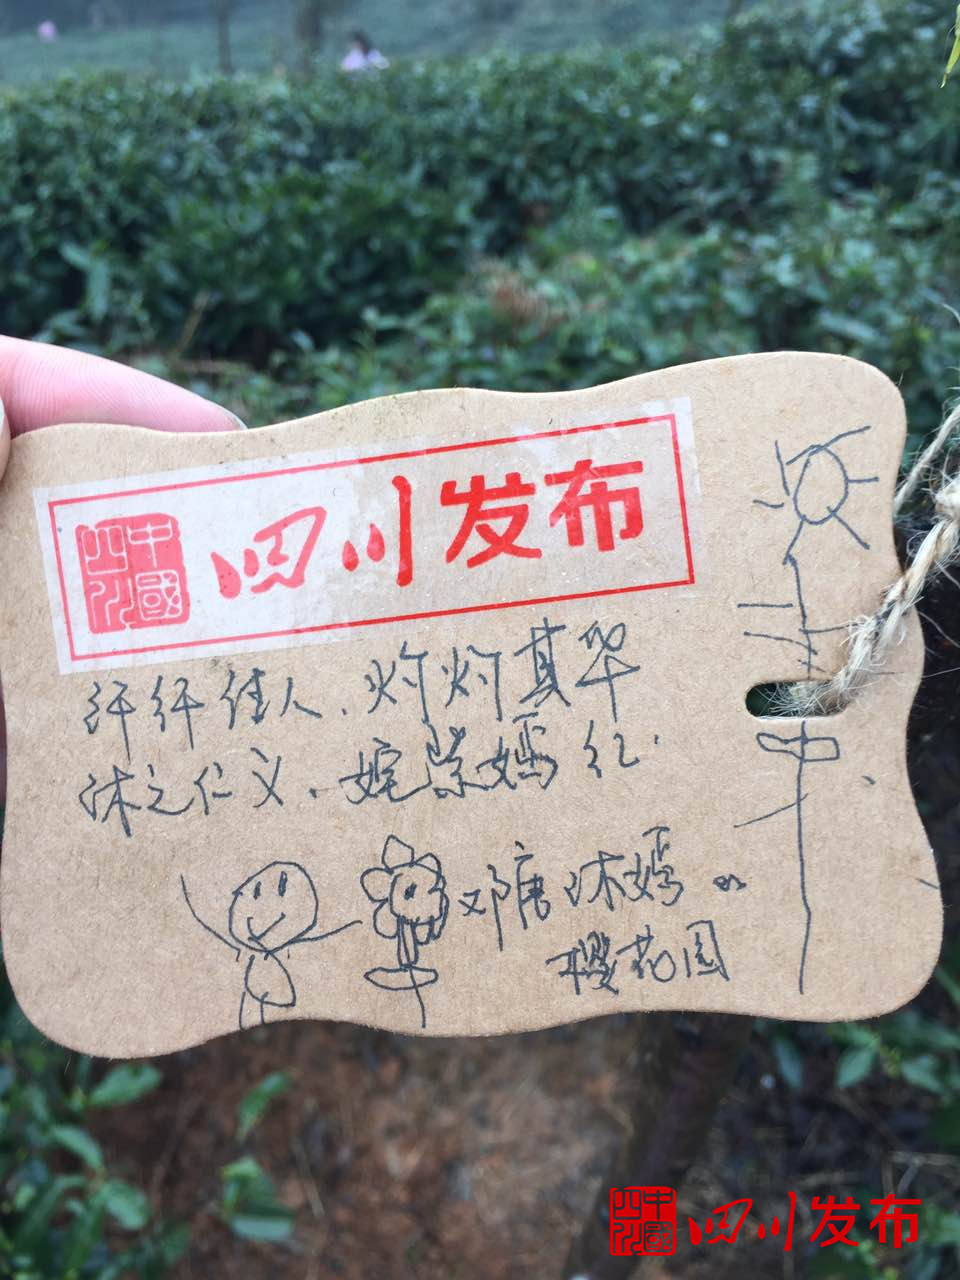 中國四川 四川发布
纤纤佳人、灼灼其华
沐之仁义、姹紫嫣红.
邓唐沐嫣
樱花园
中國四川 四川发布